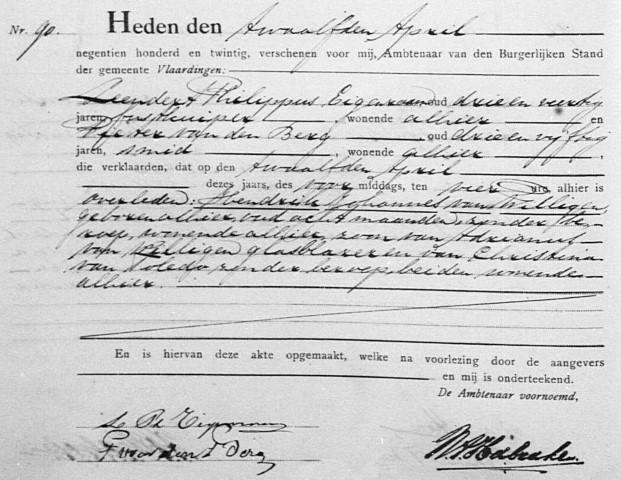 Nr. 90. Heden den twaalfden April
negentien honderd en twintig, verschenen voor mij, Ambtenaar van den Burgerlijken Stand
der gemeente Vlaardingen:
Leendert Philippus Eigenraam oud drie en veertig
jaren, kuiper, wonende alhier en
Pieter van den Berg, oud drie en vijftig
jaren, smid, wonende alhier,
die verklaarden, dat op den twaalfden April
dezes jaars, des voor middags, ten vier ure, alhier is
overleden: Hendrik Johannes van Willigen,
geboren alhier, oud acht maanden, zonder be-
roep, wonende alhier, zoon van Adrianus
van Willigen glasblazer en van Christina
van Toledo, zonder beroep, beiden wonende
alhier.
En is hiervan deze akte opgemaakt, welke na voorlezing door de aangevers
en mij is onderteekend.
De Ambtenaar voornoemd,
L. Ph. Eigenraam
P van den Berg